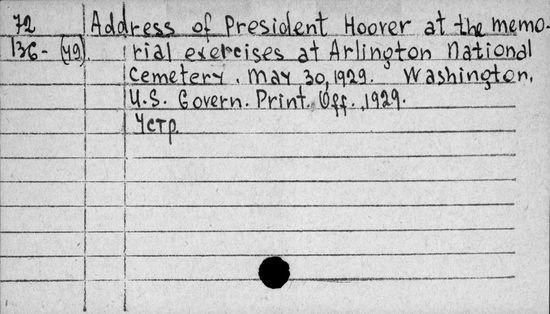 72 Address of President Hoover at the memo-
136-(49) rial exercises at Arlington National
Cemetery. May 30, 1929. Washington,
U.S. Govern. Print. Off., 1929.
4стр.